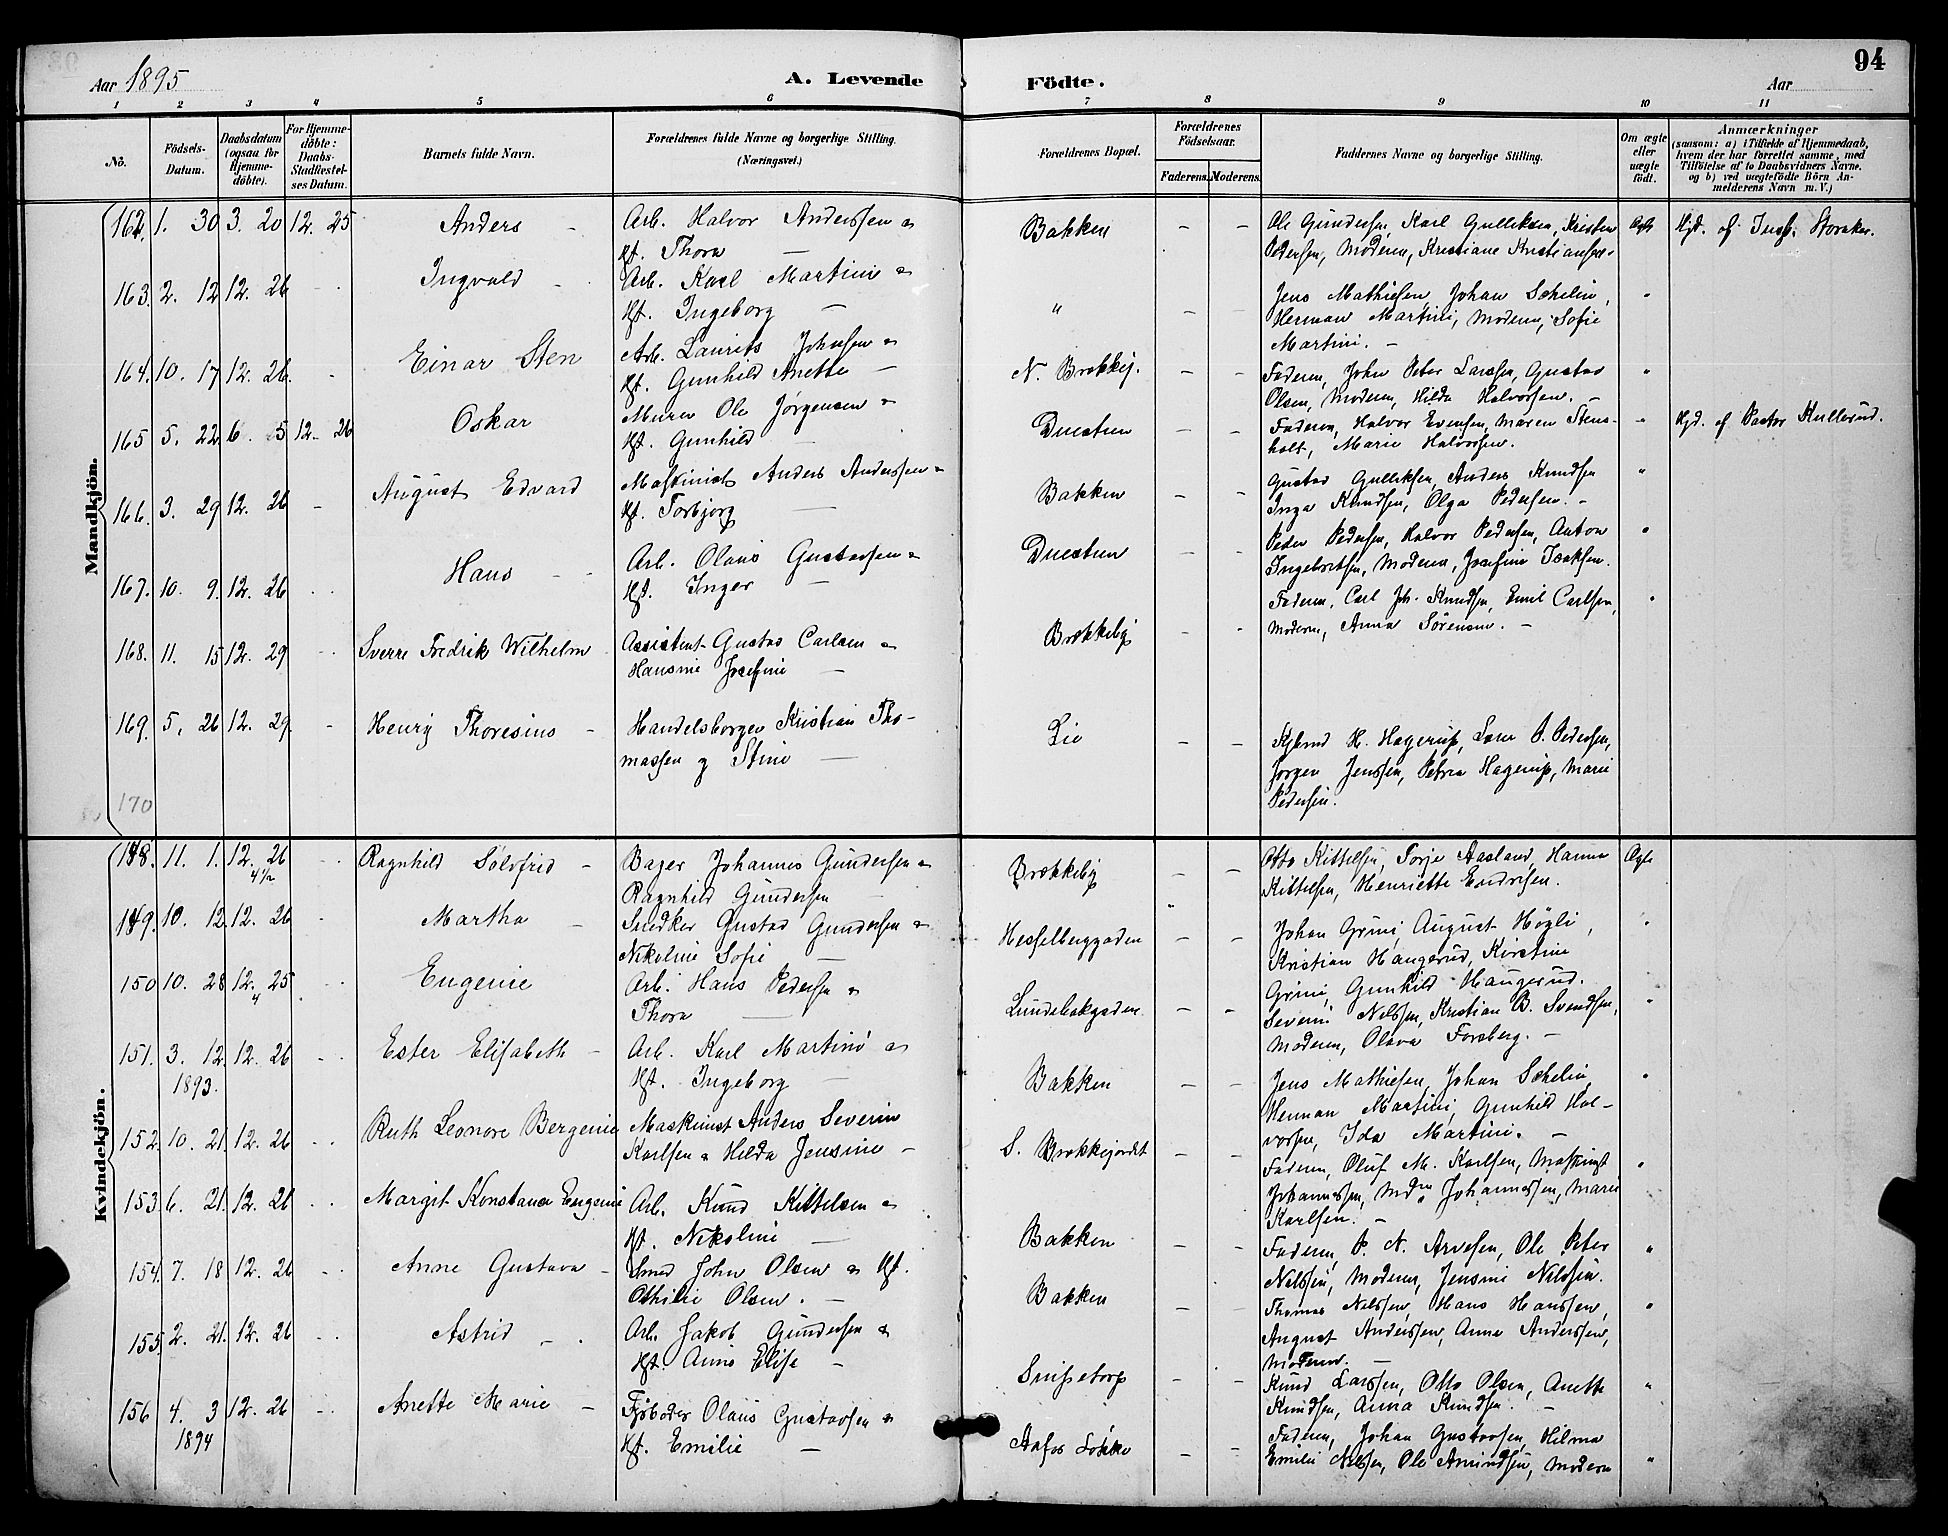 94
Aar 1895
A. Levende Födte.
Aar
1 2 3 4 5 6 7 8 9 10 11
No.
Födsels-Datum.
Daabsdatum (ogsaa for Hjemme-döbte).
For Hjemme-döbte: Daabs-Stadfæstel-ses Datum.
Barnets fulde Navn.
Forældrenes fulde Navne og borgerlige Stilling. (Næringsvei.)
Forældrenes Bopæl.
Forældrenes Födselsaar.
Faderens. Moderens.
Faddernes Navne og borgerlige Stilling.
Om ægte eller uægte födt.
Anmærkninger (saasom: a) i Tilfælde af Hjemmedaab, hvem der har forrettet samme, med Tilföielse af to Daabsvidners Navne, og b) ved uægtefödte Börn An-melderens Navn m. V.)
Mandkjön.
162. 1. 30 3. 20 12. 25 Anders - Arb. Halvor Anderssen & Bakken - - Ole Gundersen, Karl Gulliksen, Kristen Ægte Hjd. af Storaker.
Hst. Thora - Pedersen, Moderen, Kristiane Kristiansen.
163. 2. 12 12. 26 - Ingvald - Arb. Karl Martini & " - - Jens Mathiesen, Johan Schelin, "
Hst. Ingeborg - Herman Martini, Moderen, Sofie
Martini. -
164. 10. 17 12. 26. - Einar Sten Arb. Laurits Johnsen & N. Brekkej. - - Faderen, John Peter Larssen, Gustav "
Hst. Gunhild Anette - Olsen, Moderen, Hilda Halvorsen. -
165 5. 22 6. 5 12. 26 Oskar Murer Ole Jörgensen & Duestien - - Faderen, Halvor Evensen, Maren Stens- " Hjd. af Pastor Kullerud.
Hst. Gunhild - holt, Marie Halvorsen.
166. 3. 29 12. 26 - August Edvard Maskinist Anders Anderssen & Bakken - - Gustav Gulliksen, Anders Knudsen "
Hst. Torbjorg - Inga Knudsen, Olga Pedersen. -
167. 10. 9. 12. 26 - Hans - Arb. Olaus Gustavsen & Duestien - - Peder Pedersen, Halvor Pedersen, Anton "
Hst. Inger - Ingebretsen, Moderen, Josefine Isaksen.
168. 11. 15 12. 29 - Sverre Fredrik Wilhelm Assistent Gustav Carlsen & Brekkeby - - Faderen, Carl Joh. Knudsen, Emil Carlsen, "
Hansine Josefine - Moderen, Anna Sörensen. -
169. 5. 26 12. 29. - Henry Thoresius - Handelsborger Kristian Tho- Lie - - H. Hagerup, Lars P. Pedersen,
massen & Stine - Jörgen Jenssen, Petrea Hagerup, Marie
Pedersen.
170
Kvindekjön.
148. 11. 1. 12. 26 - Ragnhild Sölvfrid - Bager Johannes Gundersen & Brekkeby - - Otto Kittelsen, Torje Aasland, Hanna Ægte
4 1/2 Ragnhild Gundersen - Kittelsen, Henriette Endresen.
149. 10. 12. 12. 26 - Martha - Snedker Gustav Gundersen & Hesselberggaden - - Johan Grini, August Högli, "
Nikoline Sofie - Kristian Haugerud, Kirstine
Grini, Gunhild Haugerud.
150 10. 28 12. 25 - Eugenie Arb. Hans Pedersen & Lundebakgaden - - Severin Nilssen, Kristian B. Svendsen, "
4 Thora - Moderen, Olava Forsberg. -
151. 3. 12. 12. 26 - Ester Elisabeth - Arb. Karl Martini & Bakken - - Jens Mathiesen, Johan Schelin "
1893. Hst. Ingeborg - Herman Martini, Gunhild Hal-
vorsen, Ida Martini. -
152. 10. 21. 12. 26 - Ruth Leonore Bergenie Maskinist Anders Severin S. Brekkejordet - - Faderen, Oluf M. Karlsen, Maskinist "
Karlsen & Hilda Jensine - Johannessen, Johannessen, Marie
Karlsen. -
153. 6. 21. 12. 26 - Margit Konstanse Eugenie Arb. Knud Kittelsen & Bakken - - Faderen, P. N. Arvesen, Ole Peter "
Hst. Nikoline - Nilssen, Moderen, Jensine Nilssen.
154. 7. 18 12. 26 - Anne Gustava - Smed John Olsen & Hst. Bakken - - Thomas Nilssen, Hans Hanssen, "
Othilie Olsen. - August Anderssen, Anna Anderssen,
Moderen. -
155. 2. 21. 12. 26 - Astrid - Arb. Jakob Gundersen & Snipetorp - - Knud Larssen, Otto Olsen, Anette "
Hst. Anne Elise - Knudsen, Anna Knudsen. -
156 4. 3 12. 26 - Anette Marie - Fjöböder Olaus Gustavsen & Aafos Lökke - - Faderen, Johan Gustavsen, Hilma "
1894 Hst. Emilie - Emilie Nilssen, Ole Amundsen, Moderen